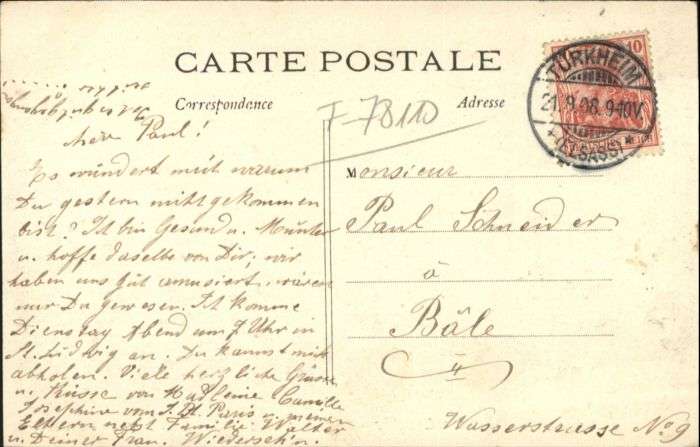 CARTE POSTALE
Correspondance
Adresse
F-78110
10
TÜRKHEIM
21.9.08.9-10V.
*(ELSASS)*
Cher Paul!
Es wündert mich warum
Du gestern nicht gekommen
bist? Ich bin Gesund u. Munter
u. hoffe dasselbe von Dir; wir
haben uns gut amusiert, wären
nur Du gewesen. Ich komme
Dienstag Abend um 7 Uhr in
St. Ludwig an. Du kannst mich
abholen. Viele herzliche Grüsse
u. Küsse von Madleine Camille
Josephine vom J. Bt. Paris u. meinen
Eltern nebst Familie Walter
u Deiner Frau. Wiedersehn.
Monsieur
Paul Schneider
à
Bâle
Wasserstrasse No 9